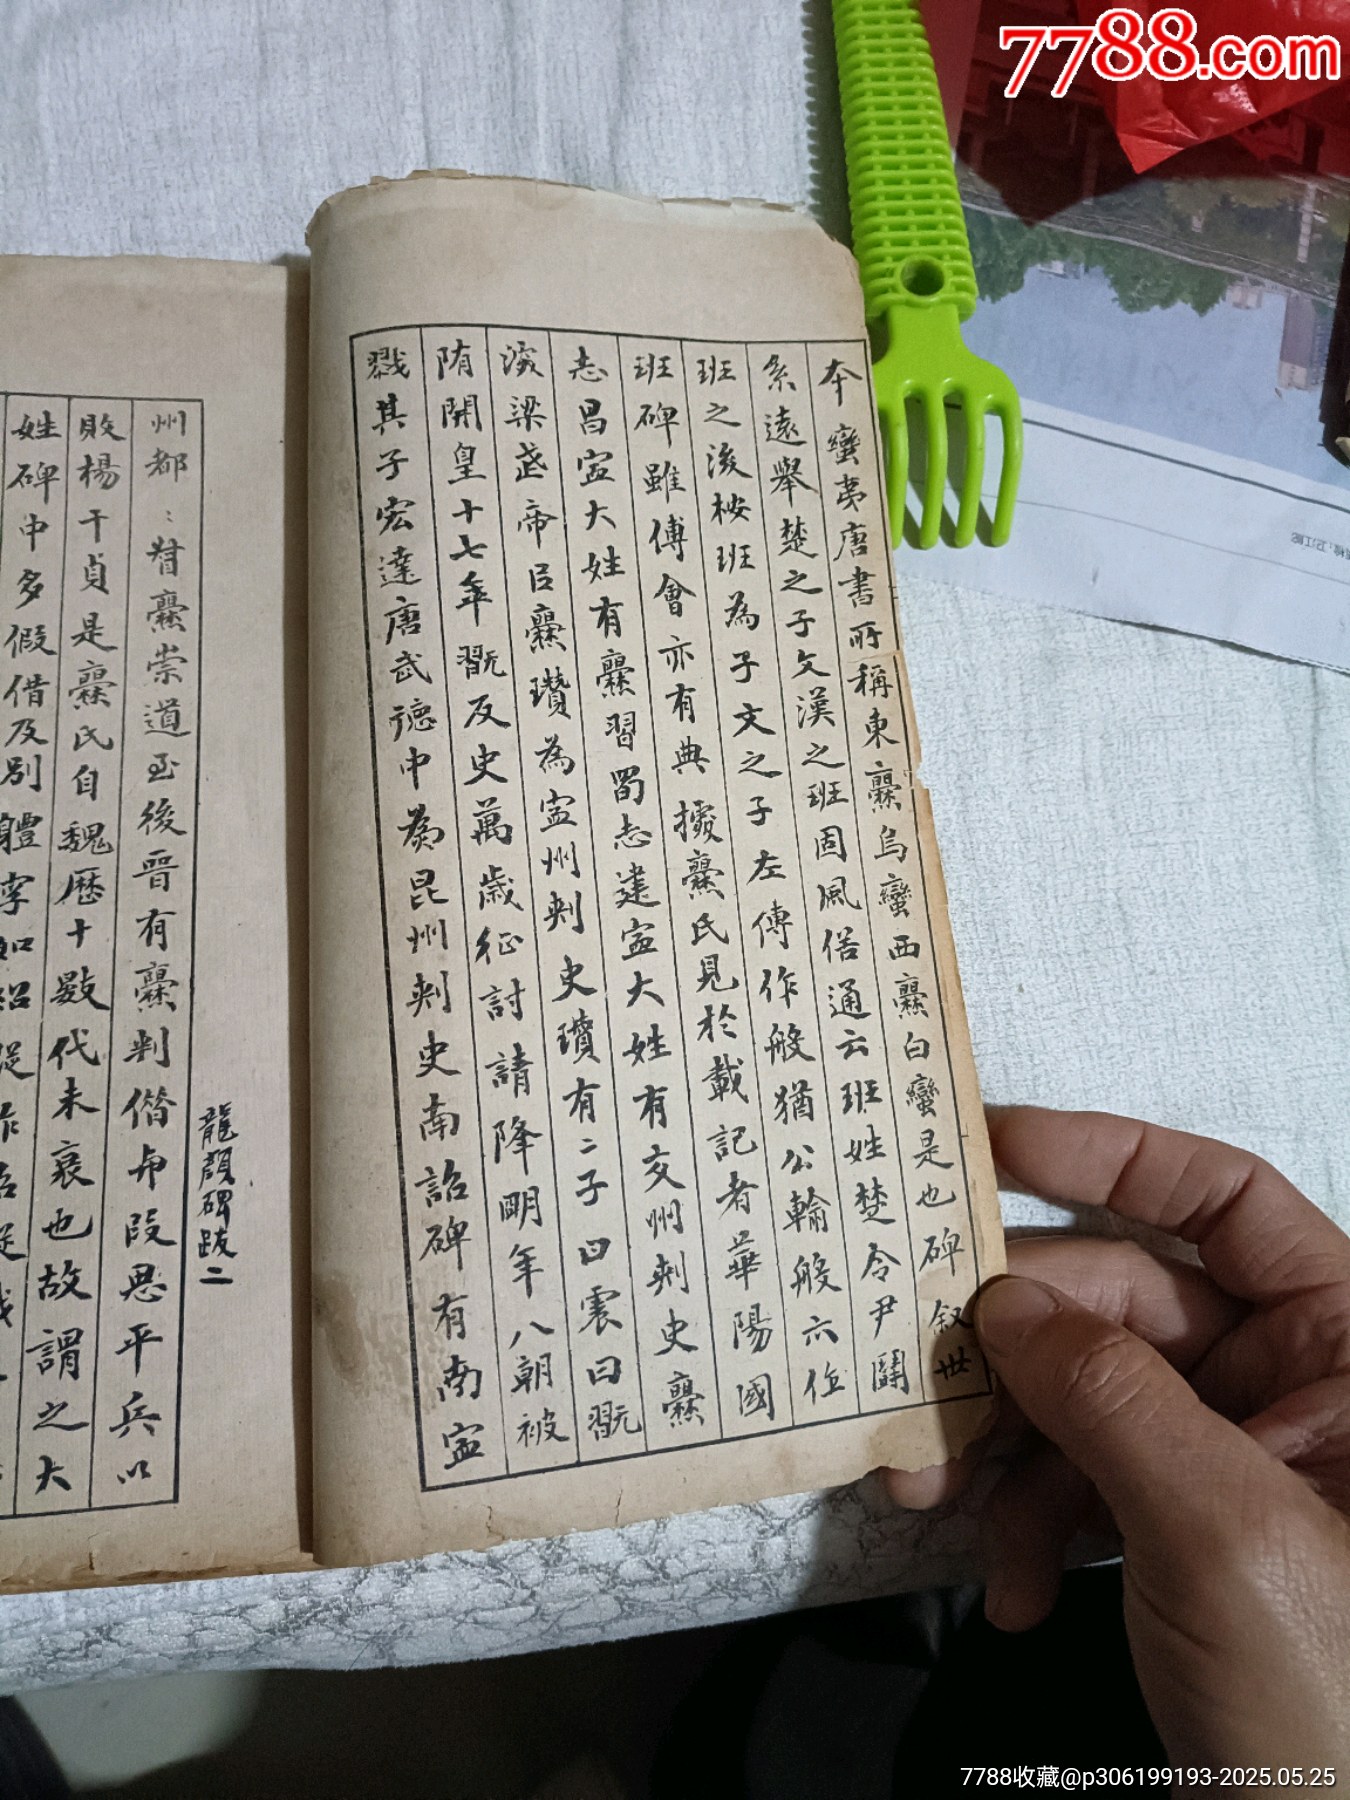 7788.com
本蠻苐唐書所稱東爨烏蠻西爨白蠻是也碑叙世
系遠舉楚之子文漢之班固風俗通云班姓楚令尹鬪
班之後桉班為子文之子左傳作般猶公輸般六作
班碑雖傅會亦有典據爨氏見於載記者華陽國
志昌寍大姓有爨習蜀志建寍大姓有交州刺史爨
深梁武帝臣爨瓚為寍州刺史瓚有二子曰震曰翫
隋開皇十七年翫反史萬歲征討請降明年入朝被
戮其子宏達唐武德中為昆州刺史南詔碑有南寍
龍顏碑跋二
州都督爨崇道至後晉有爨判偕布段思平兵以
敗楊干貞是爨氏自魏歷十數代未衰也故謂之大
姓碑中多假借及別體字如
7788收藏@p306199193-2025.05.25